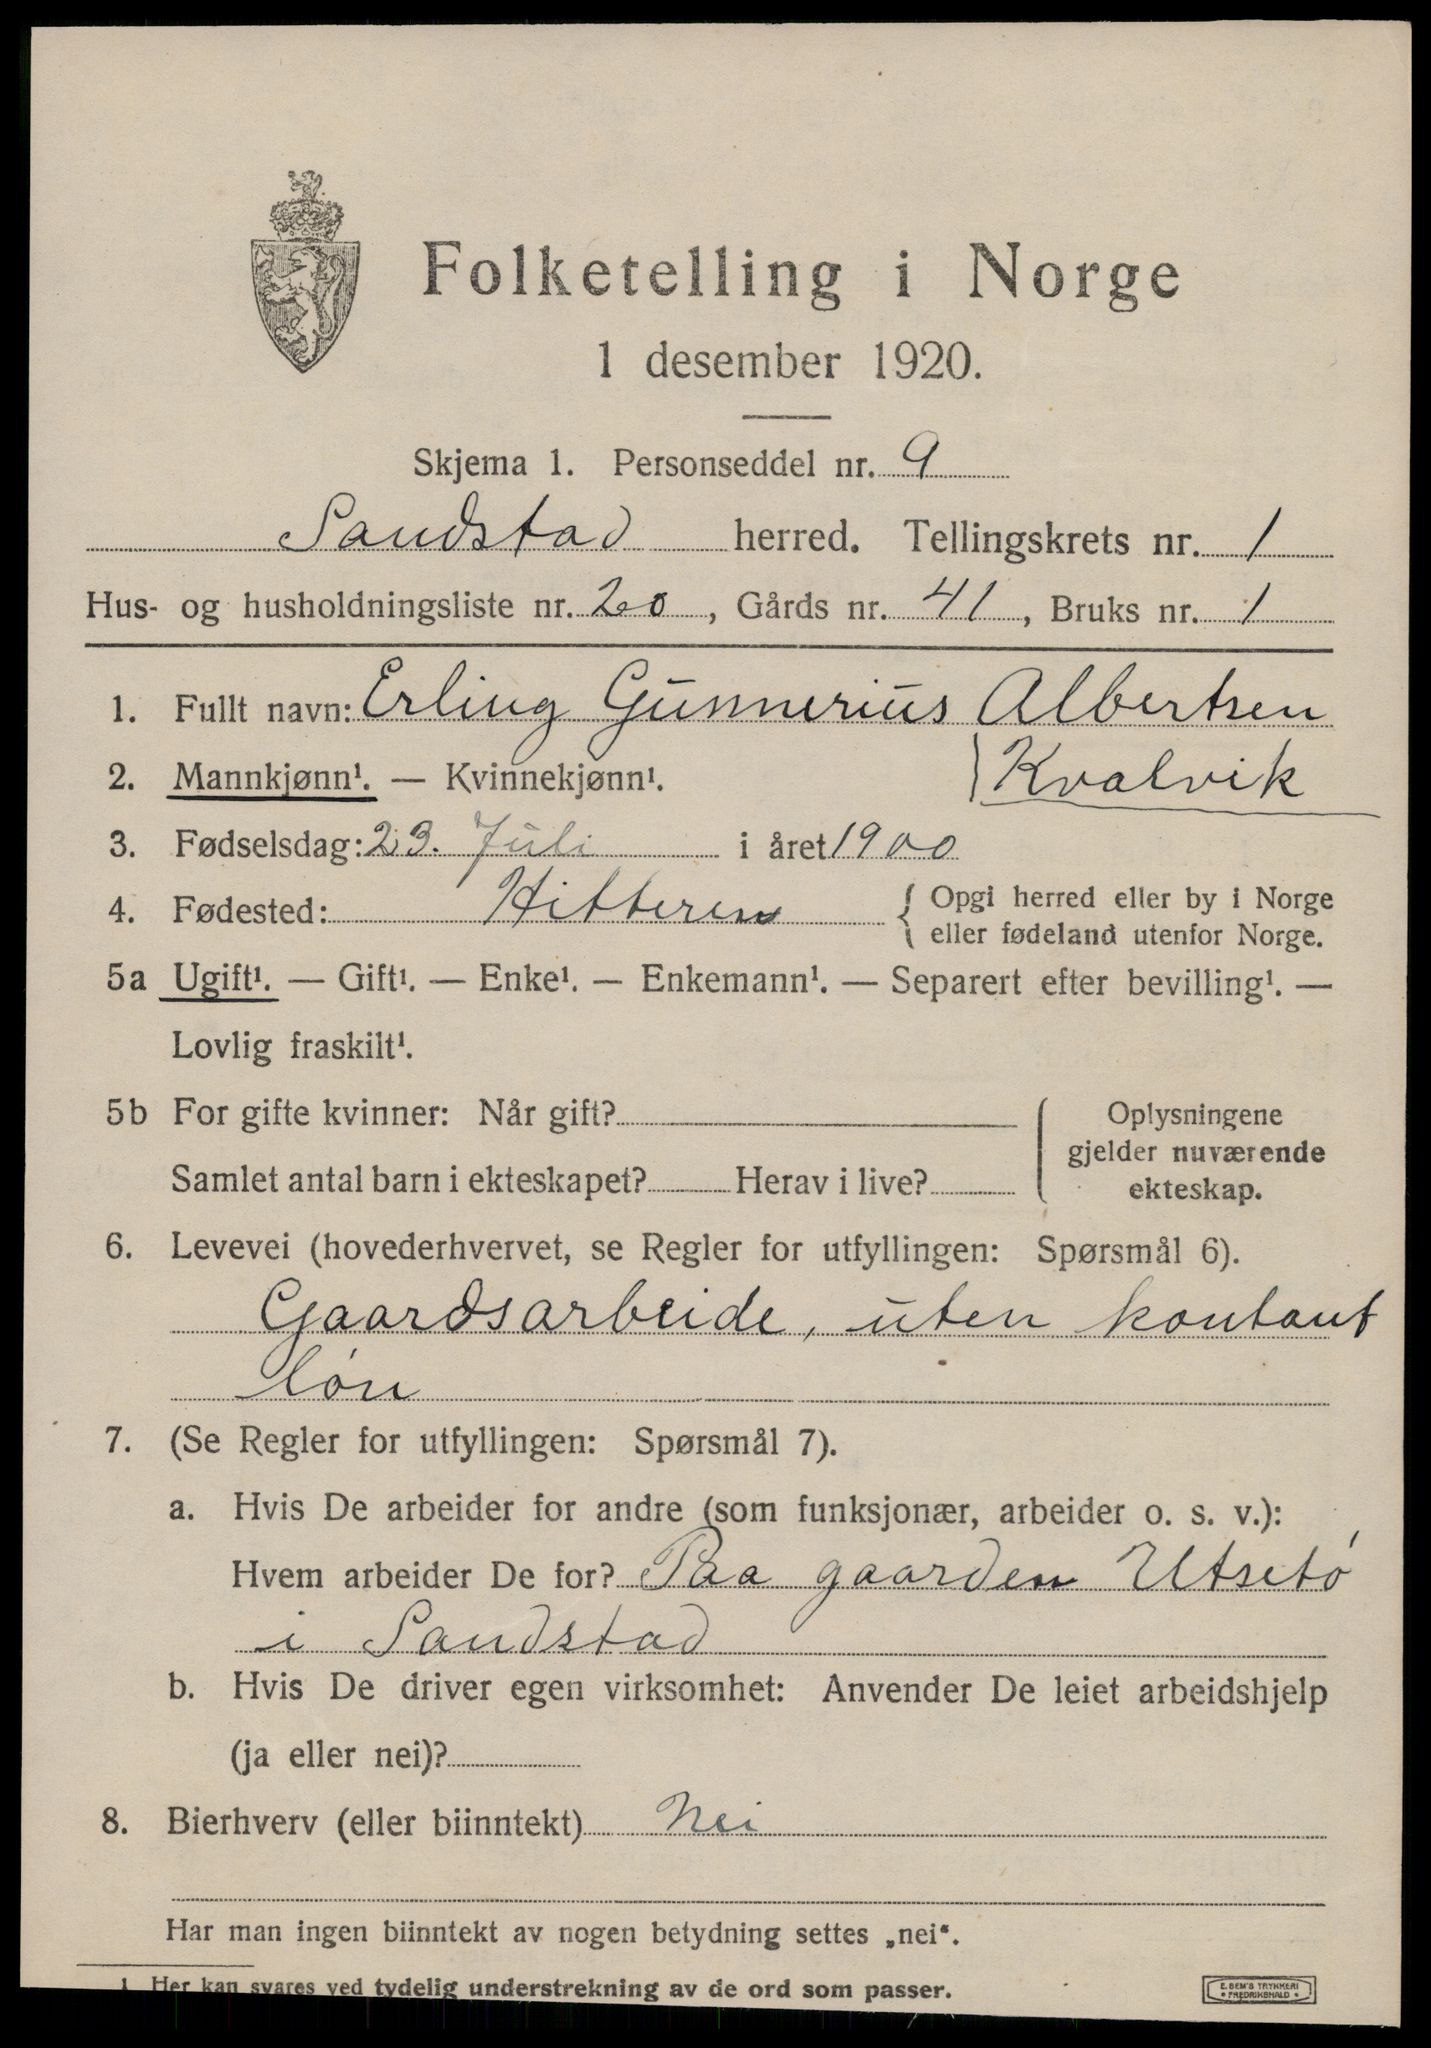 Folketelling i Norge
1 desember 1920.
Skjema 1. Personseddel nr. 9
Sandstad herred. Tellingskrets nr. 1
Hus- og husholdningsliste nr. 20, Gårds nr. 41, Bruks nr. 1
1. Fullt navn: Erling Gunnerius Albertsen
Kvalvik
2. Mannkjønn¹. — Kvinnekjønn¹.
3. Fødselsdag: 23. Juli i året 1900
4. Fødested: Hitteren { Opgi herred eller by i Norge
eller fødeland utenfor Norge.
5a Ugift¹. — Gift¹. — Enke¹. — Enkemann¹. — Separert efter bevilling¹. —
Lovlig fraskilt¹.
5b For gifte kvinner: Når gift?
Samlet antal barn i ekteskapet? Herav i live?
Oplysningene
gjelder nuværende
ekteskap.
6. Levevei (hovederhvervet, se Regler for utfyllingen: Spørsmål 6).
Gaardsarbeide, uten kontant
løn
7. (Se Regler for utfyllingen: Spørsmål 7).
a. Hvis De arbeider for andre (som funksjonær, arbeider o. s. v.):
Hvem arbeider De for? Paa gaarden Utsetø
i Sandstad
b. Hvis De driver egen virksomhet: Anvender De leiet arbeidshjelp
(ja eller nei)?
8. Bierhverv (eller biinntekt) Nei
Har man ingen biinntekt av nogen betydning settes „nei“.
1 Her kan svares ved tydelig understrekning av de ord som passer.
E. SEM'S TRYKKERI
• FREDRIKSHALD •